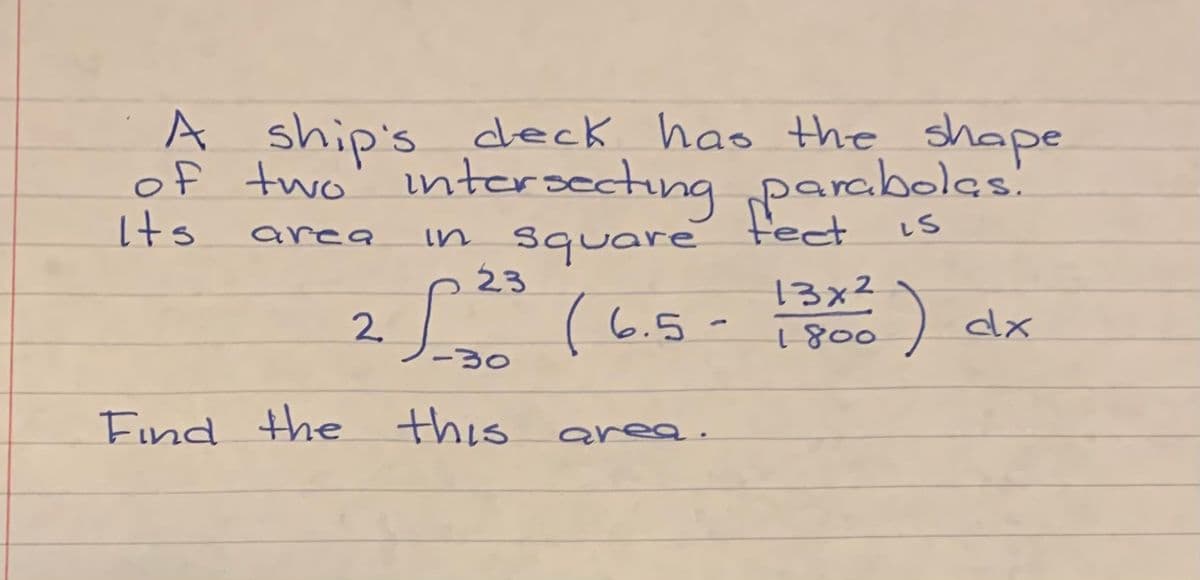 A ship's deck has the shape
of two intersecting parabolas.
Its area in square feet is
2 ∫_{-30}^{23} ( 6.5 - \frac{13x^2}{1800} ) dx
Find the this area.